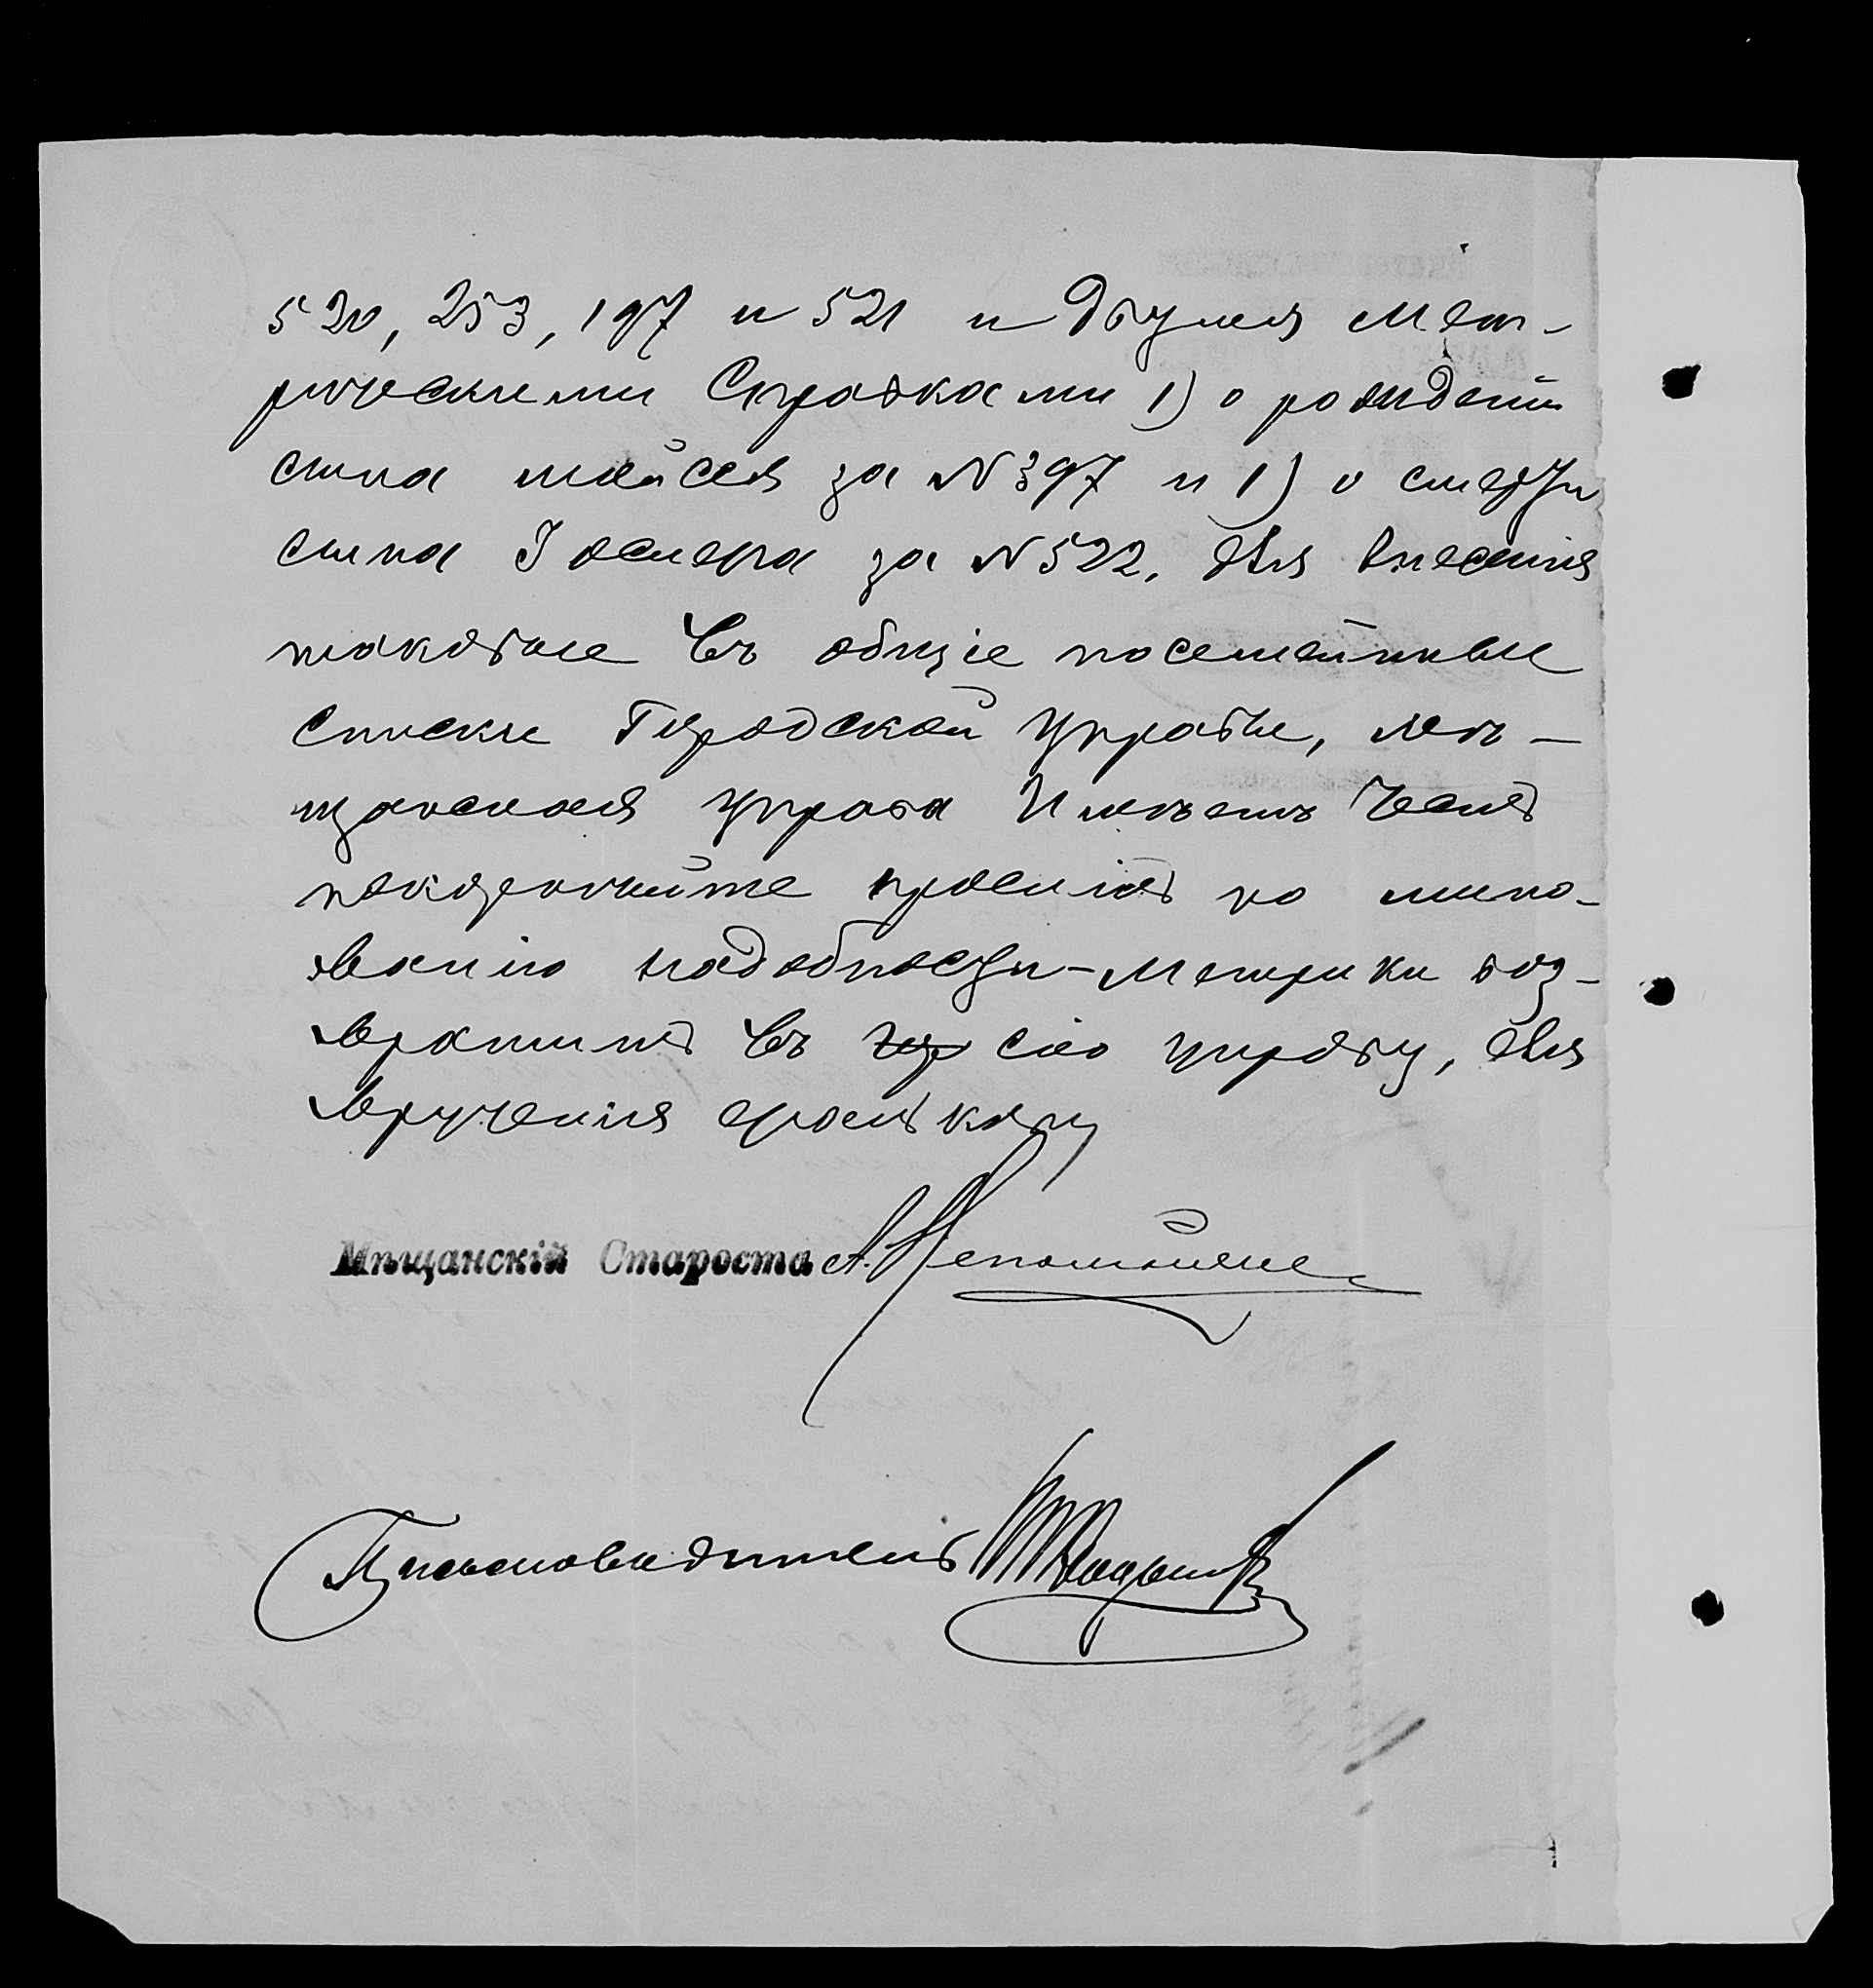 520, 253, 197 и 521 и двумя мет-
рическими Справками 1) о рожденiи
сына Мойсея за N 397 и 1) о смерти
сына Iосифа за N 522, для внесенiя
таковые въ общiе посемейные
списки Городской управы, мѣ-
щанская управа Имѣетъ честь
покорнейше просить по мино-
ванiю надобности - метрики воз-
вратить въ сiю управу, для
врученiя просителю
Мѣщанскiй Староста А.
Письмоводитель